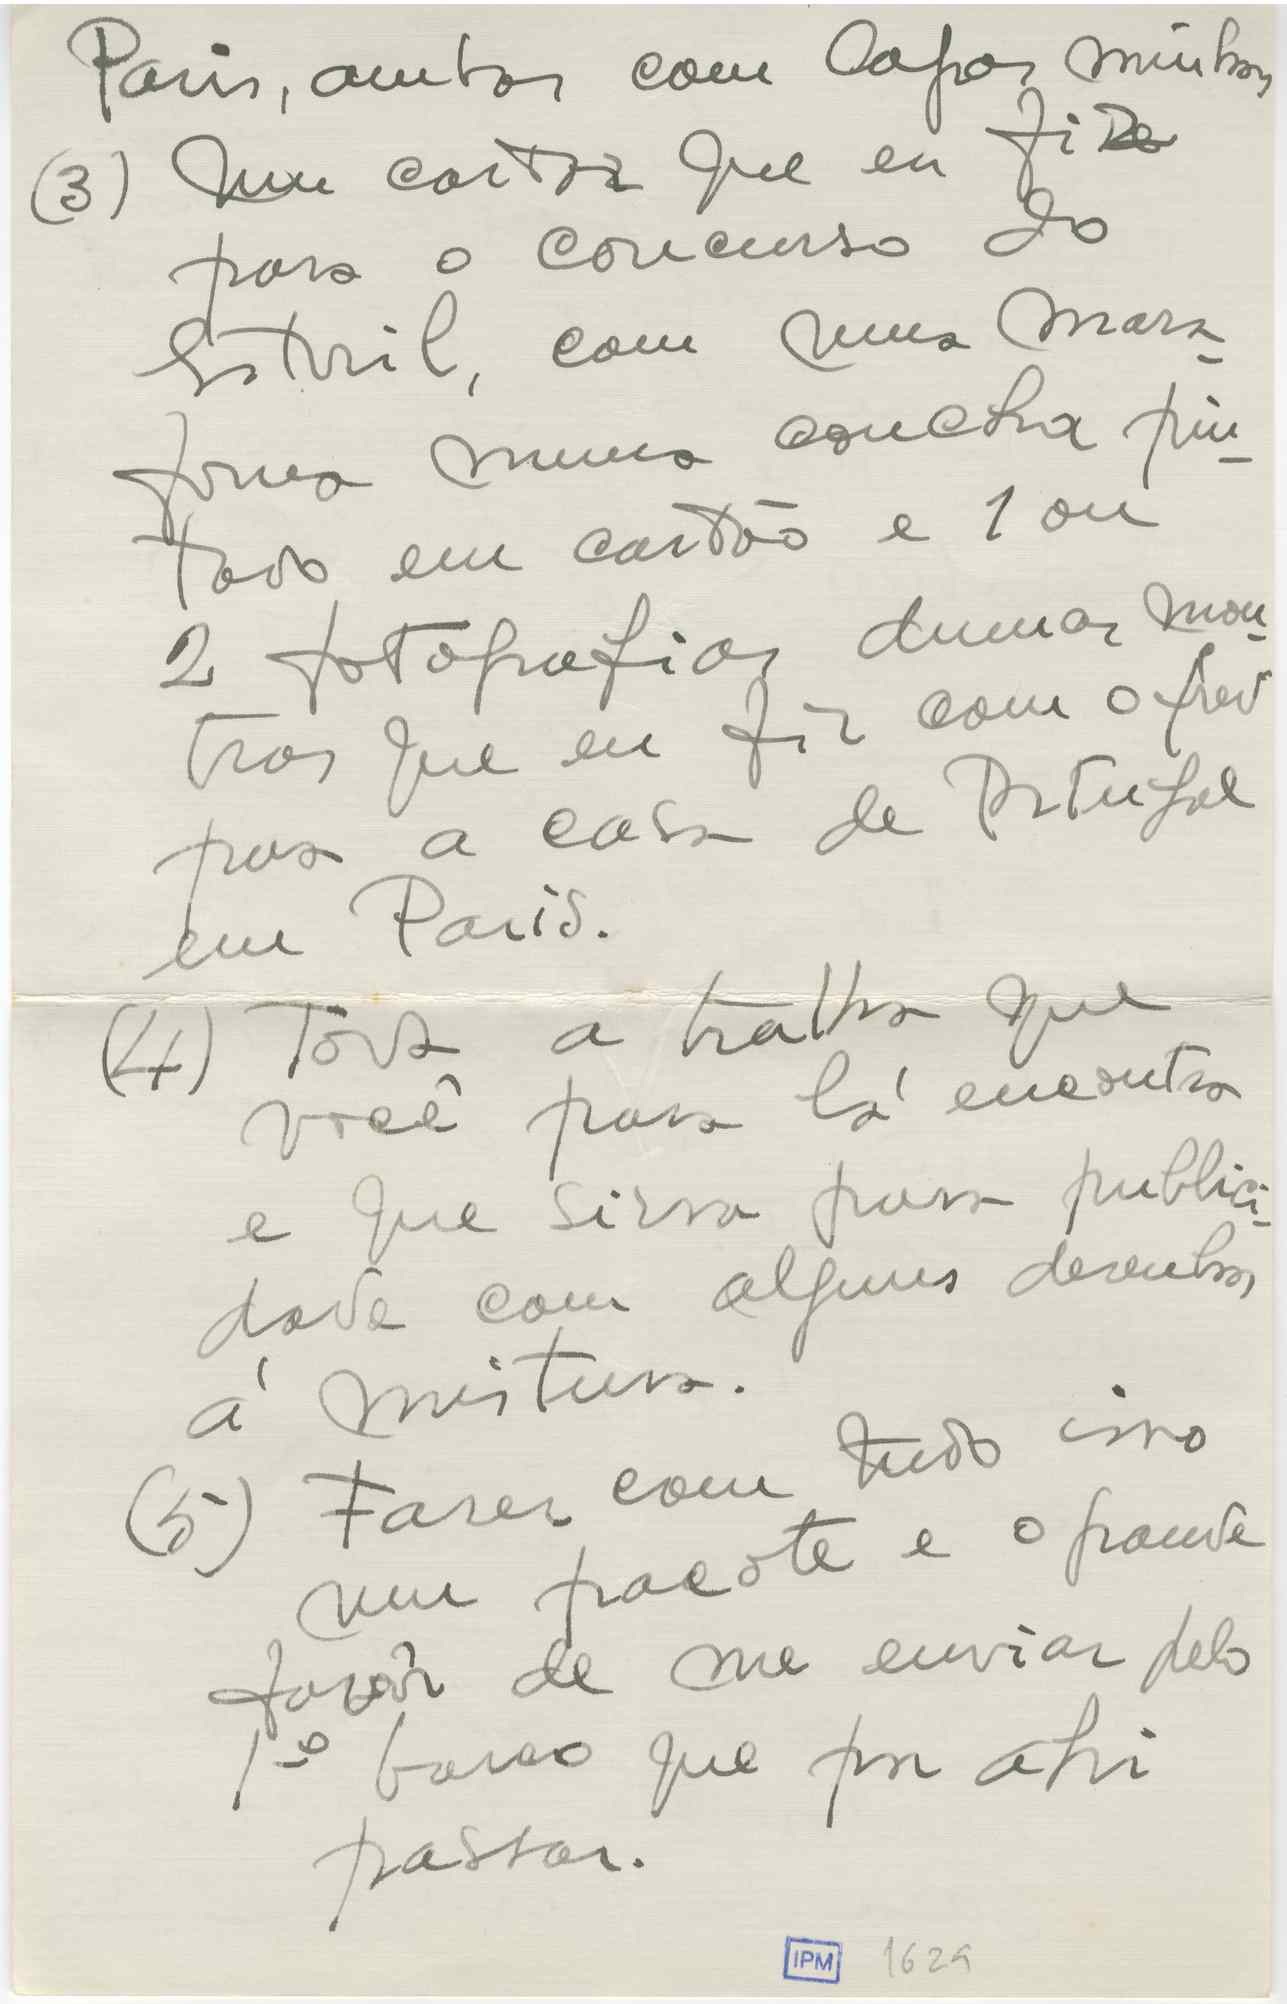 Paris, ambas com Capas minhas
(3) Um cartaz que eu fiz
para o concurso do
Estoril, com uma mara-
fona numa concha pin-
tado em cartão e 1 ou
2 fotografias dumas mon-
tras que eu fiz com o Fred
para a casa de Portugal
em Paris.
(4) Toda a tralha que
você para lá encontra
e que sirva para publici-
dade com alguns desenhos
á mistura.
(5) Fazer com tudo isso
um pacote e o grande
favôr de me enviar pelo
1º barco que por ahi
passar.
IPM 1629